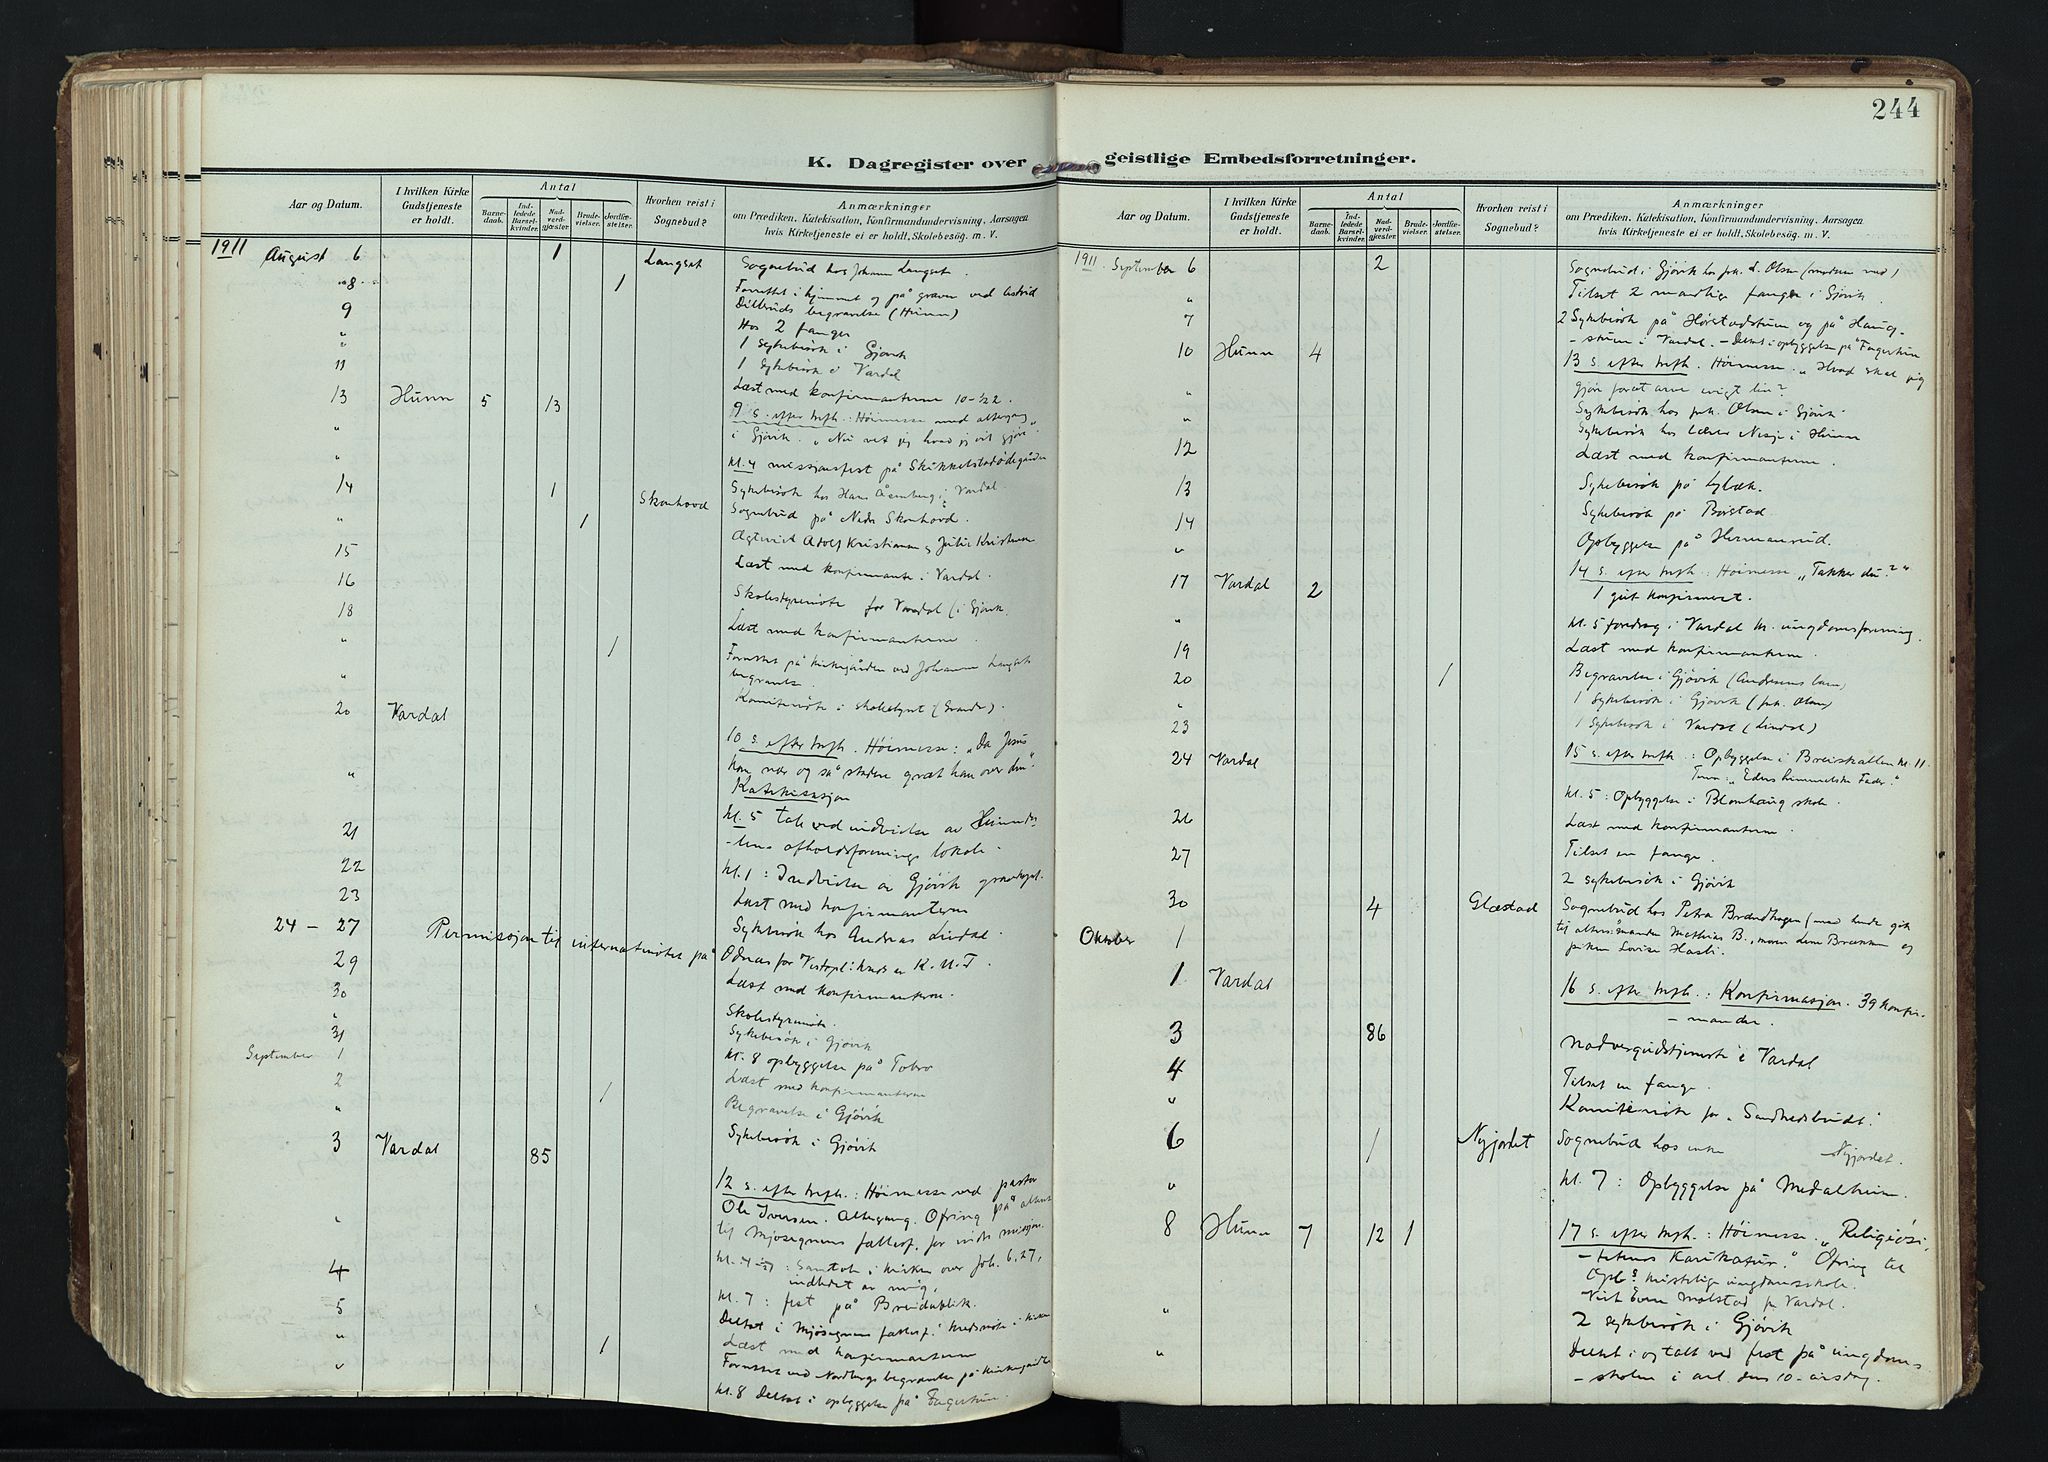 244
K. Dagregister over geistlige Embedsforretninger.
Aar og Datum.
I hvilken Kirke Gudstjeneste er holdt.
Antal
Barne-daab.
Ind-ledede Barsel-kvinder.
Nad-verd-gjæster.
Brude-vielser.
Jordfæ-stelser.
Hvorhen reist i Sognebud?
Anmærkninger
om Prædiken, Katekisation, Konfirmandundervisning, Aarsagen
hvis Kirketjeneste ei er holdt, Skolebesøg, m. V.
1911 August 6 1 Langset Sognebud hos Johann Langset.
8 1 Forrettet i hjemmet og på graven ved Astrid
9 begravelse (Hunn)
" Hos 2 fanger
" 1 sykebesøk i Gjøvik
11 1 sykebesøk i Vardal
13 Hunn 5 13 Læst med konfirmanterne 10-12.
9 s. efter trefh.: Høimesse med altergang
" i Gjøvik. "Nu vet jeg hvad jeg vil gjøre".
" kl. 4 missjonsfest på Skikkelstadødegården
14 1 Sykebesøk hos Hans i Vardal.
Skonhovd
" 1 Sognebud på Nedre Skonhovd.
Egteviet Adolf Kristiansen og Julie Kristensen
15 Læst med konfirmanter i Vardal.
16 Skolestyremøte for Vardal (i Gjøvik.
18 Læst med konfirmanterne.
" 1 Forrettet på kirkegården ved Johannes Langsets
" begravelse.
Komitemøte i skolestyret ().
20 Vardal
10 s. efter trefh. Høimesse: "Da Jesus
kom nær og så staden græt han over den".
" Katekisasjon
21 kl. 5 tale ved indvielse av
avholdsforenings lokale.
22 kl. 1: Indvielse av Gjøvik gravkapel.
23 Læst med konfirmanterne
24 – 27 Sykebesøk hos Andreas Lindal.
Permissjon til internatmøtet på Odnes for Vestopl: kreds av K.U.F.
29
30 Læst med konfirmanterne.
" Skolestyremøte.
31 Sykebesøk i Gjøvik
September 1 kl. 8 opbyggelse på Tobro
2 Læst med konfirmanterne
" 1 Begravelse i Gjøvik
3 Vardal 85 Sykebesøk i Gjøvik
12 s. efter trefh.: Høimesse ved pastor
Ole Iversen. Altergang. Ofring på alteret
" til Mjøsegnens fællesf. for indre missjon.
kl. 4-7: Samtale i kirken over Joh. 6,27,
4 indledet av mig.
5 kl. 7: fest på Breidablik.
Deltat i Mjøsegnens fællesf.s kredsmøte i kirken
" 1 Læst med konfirmanterne
" Forrettet ved Nordbergs begravelse på kirkegården
kl. 8 Deltat i opbyggelse på Fagertun.
Aar og Datum.
I hvilken Kirke Gudstjeneste er holdt.
Antal
Barne-daab.
Ind-ledede Barsel-kvinder.
Nad-verd-gjæster.
Brude-vielser.
Jordfæ-stelser.
Hvorhen reist i Sognebud?
Anmærkninger
om Prædiken, Katekisation, Konfirmandundervisning, Aarsagen
hvis Kirketjeneste ei er holdt, Skolebesøg, m. V.
1911. September 6 2 Sognebud i Gjøvik hos frk. d. Olsen (moderen med)
" Tilset 2 mandlige fanger i Gjøvik.
7 2 Sykebesøk på Hørstadstuen og på Haug-
10 Hunn 4 -stuen i Vardal. – Deltat i opbyggelse på "Fagertun
13 s. efter trefh. Høimesse. "Hvad skal jeg
gjøre foratt arve evigt liv?
" Sykebesøk hos frk. Olsen i Gjøvik
" Sykebesøk hos lærer Nesje i Hunn
12 Læst med konfirmanterne.
13 Sykebesøk på Lybæk.
14 Sykebesøk på Børstad.
" Opbyggelse på Hermanrud.
17 Vardal 2 14 s. efter trefh.: Høimesse "Takker du?"
1 gut konfirmert.
" kl. 5 foredrag i Vardal kr. ungdomsforening.
19 Læst med konfirmanterne.
20 1 Begravelse i Gjøvik (Andresens barn)
" 1 Sykebesøk i Gjøvik (frk. Olsen)
23 1 Sykebesøk i Vardal (Lindal)
24 Vardal 15 s. efter trefh.: Opbyggelse i Breiskallen kl. 11.
Emne: "Eders himmelske Fader."
kl. 5: Opbyggelse i Blomhaug skole.
26 Læst med konfirmanterne.
27 Tilset en fange.
2 sykebesøk i Gjøvik
30 4 Glæstad Sognebud hos Petra Brændhagen (med hende gik
Oktober 1 til alters: manden Mathias B., moren Lene Brænnen og
piken Lovise Hasli.
1 Vardal 16 s. efter trefh.: Konfirmasjon. 39 konfir-
-mander.
3 86 Nadvergudstjeneste i Vardal
4 Tilset en fange.
" Komitemøte for "Sandhedsbudet".
6 1 Nyjordet Sognebud hos enke Nyjordet.
" kl. 7: Opbyggelse på Medalheim.
8 Hunn 7 12 1 17 s. efter trefh.: Høimesse. "Religiøsi-
-tetens karikatur." Ofring til
Opl.s kristelige ungdomsskole.
Viet Even Molstad fr. Vardal.
" 2 sykebesøk i Gjøvik
" Deltat i og talt ved fest på ungdoms-
-skolen i anl. dens 10-årsdag.